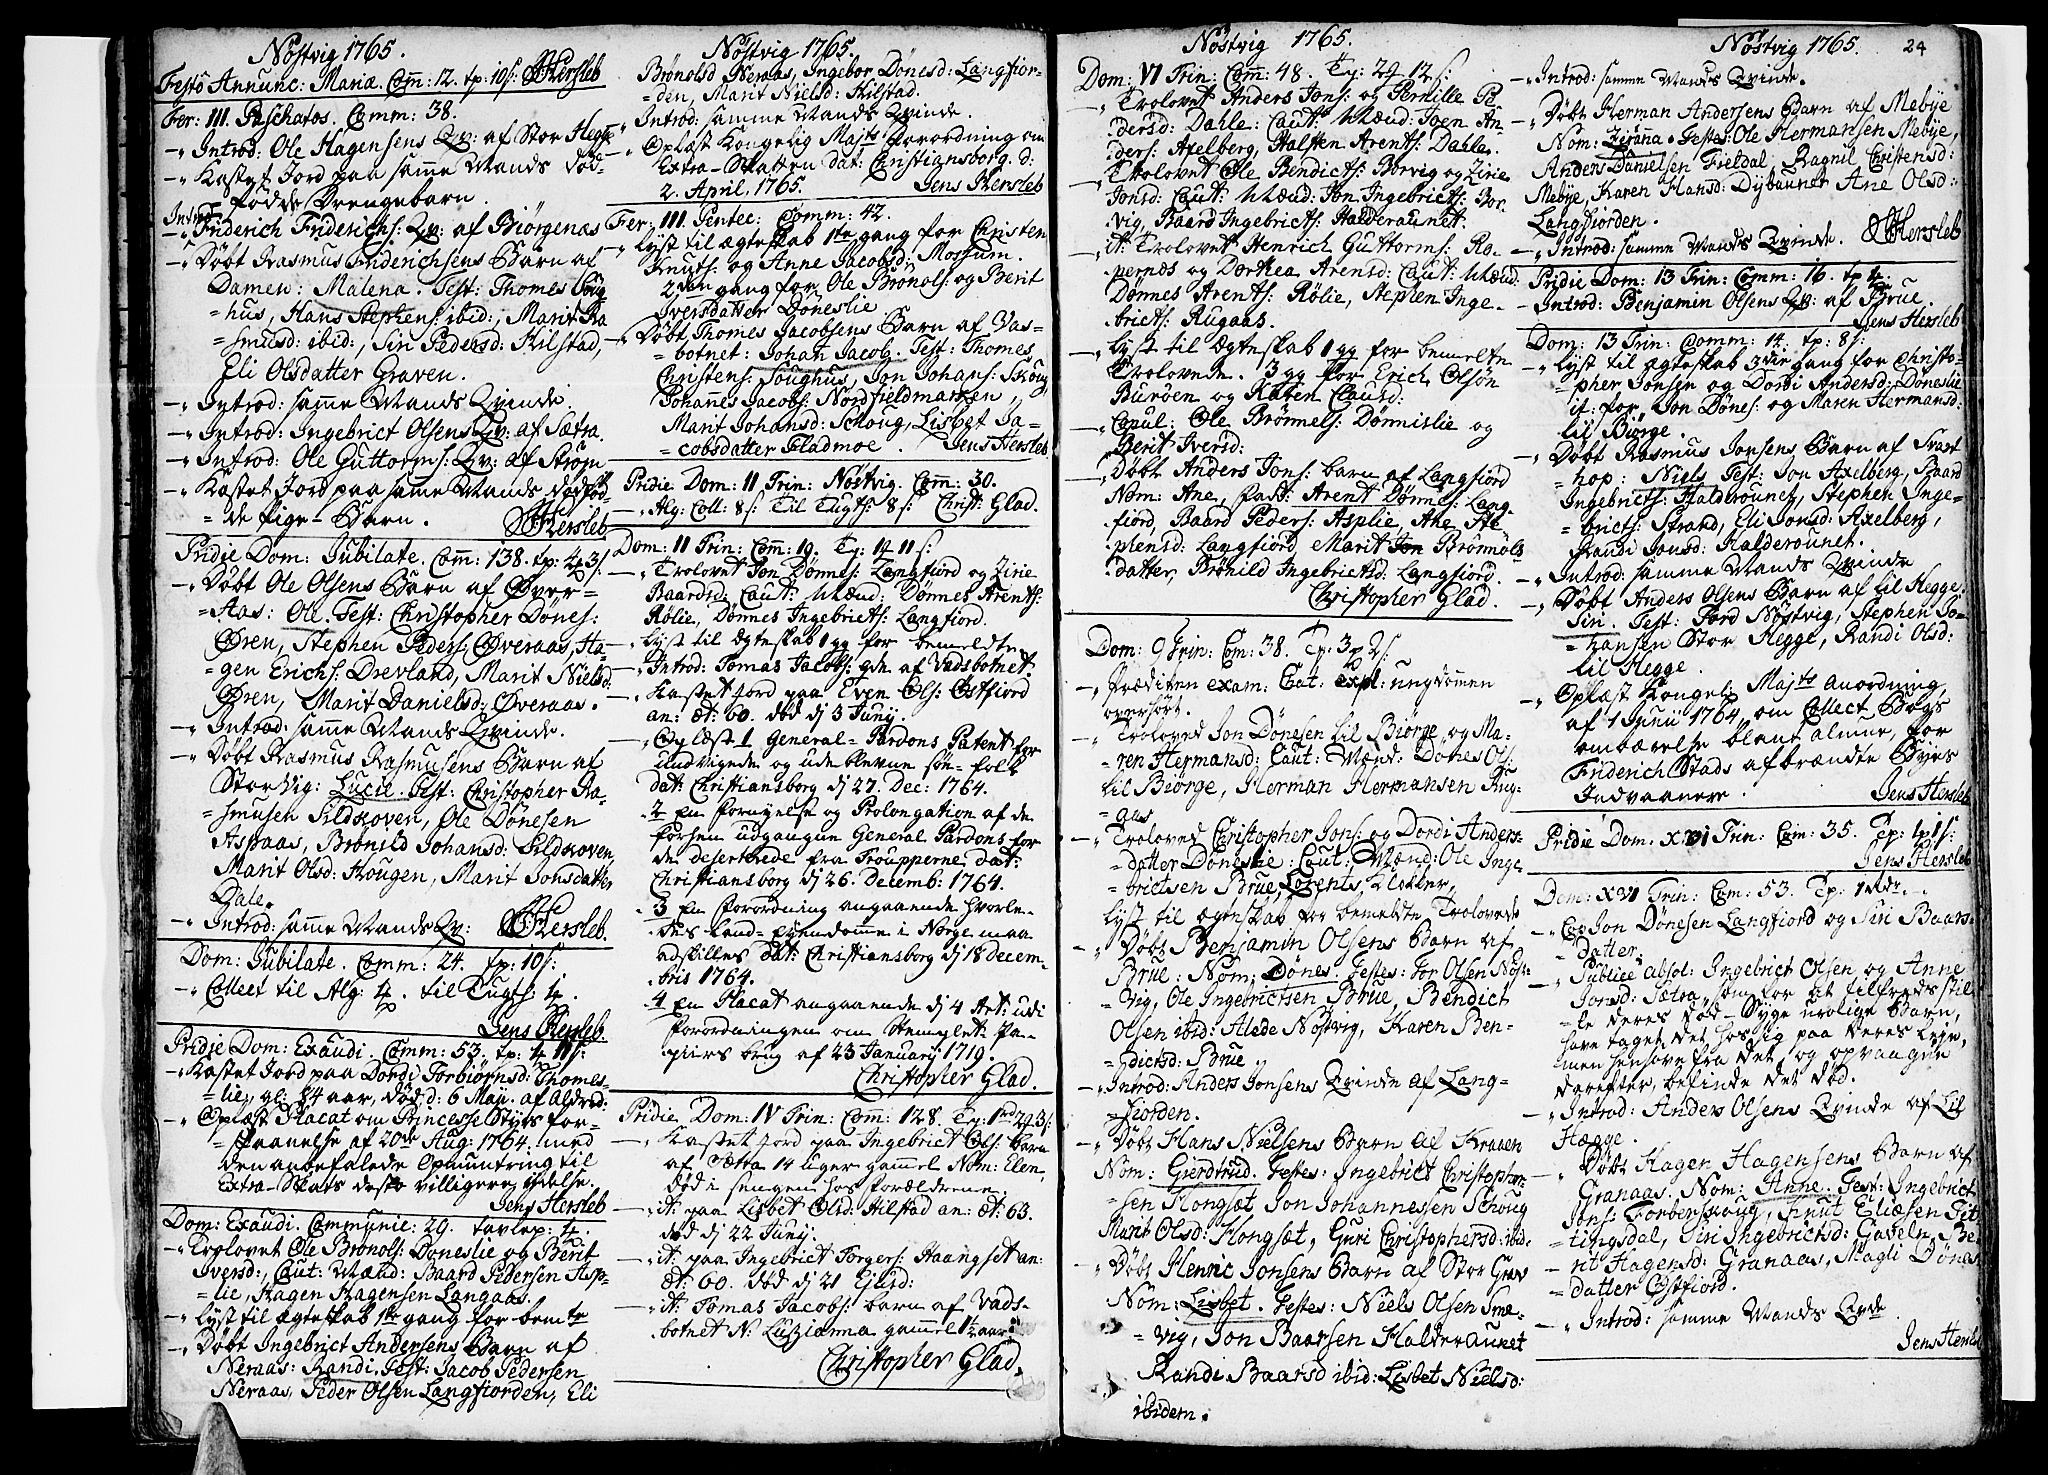 Nöstvig 1765.
Festo Annunc: Mariæ Com: 12. tp: 10 s: JHersleb
Fer: III. Paschatos. Comm: 38.
-„ Introd: Ole Hagensens Qv: af Stor Hegge
-„ Kastet Jord paa samme Mands død-
fødde Drengebarn.
Introd:
-„ Friderich Friderichs: Qv: af Biörgenæs
-„ Döbt Rasmus Friderichsens Barn af
Damen: Malena. Test: Thomes
=hus, Hans Stephens: ibid:, Marit Ra
=smusd: ibid:, Siri Pedersd: Kilstad,
Eli Olsdatter Graven.
-„ Introd: samme Mands Qvinde.
-„ Introd: Ingebrict Olsens Qv: af Sætra.
-„ Introd: Ole Guttorms: Qv: af Ström
-„ Kastet Jord paa samme Mands dødfød-
=de Pige-Barn. JHersleb
Pridie Dom: Jubilate. Com: 138. tp: 4 3 s.
-„ Döbt Ole Olsens Barn af Över-
=Aas: Ole. Test: Christopher Dönes:
Ören, Stephen Peders: Överaas, Ha-
=gen Erichs: Drevland, Marit Nielsd:
Ören, Marit Danielsd: Överaas.
-„ Introd: samme Mands Qvinde.
-„ Döbt Rasmus Rasmusens Barn af
Storvig: Lucie. Test: Christopher Ra-
=smusen Sildskoven, Ole Dönesen
Aspaas, Brönild Johansd: Sildskoven,
Marit Olsd: Hougen, Marit Jonsdatter
Dale.
-„ Introd: samme Mands Qv: JHersleb.
Dom: Jubilate. Comm: 24. tp: 10 s:
-„ Collect til Alg: 4. til Tugts: 4.
Jens Hersleb.
Pridie Dom: Exaudi. Comm: 53. tp: 4 11 s:
-„ Kastet Jord paa Dordi Torbiörnsd: Thomes-
=lie, gl: 84 aar, död d: 6 Maji. af Aldred:
-„ Oplæst Placat om Princesse Styrs for-
=skaanelse af 20de Aug: 1764. med
den anbefalede Opmuntring til
Extra-Skats desto villigere ydelse.
Jens Hersleb
Dom: Exaudi. Communic: 29. tavlep: 4
-„ Trolovet Ole Brönols: Döneslie og Berit
Iversd:, Caut: Mænd: Baard Pedersen Asp-
=lie, Hagen Hagensen Langaas.
-„ Lyst til ægteskab 1ste gang for bemte
-„ Döbt Ingebrict Andersens Barn af
Neraas: Randi. Test: Jacob Pedersen
Neraas, Peder Olsen Langfiorden, Eli
Nöstvig 1765.
Brönolsd Neraas, Ingebor Dönesd: Langfior-
=den, Marit Nielsd: Kilstad.
„ Introd: samme Mands Qvinde.
„ Oplæst Kongelig Majts Forordning om
Extra-Skatten dat: Christiansborg d:
2. April, 1765. Jens Hersleb
Fer: III Pentec: Comm: 42.
-„ Lyst til ægteskab 1ste gang for Christen
Knuts: og Anne Jacobsd: Mossum.
2den gang for Ole Brönols: og Berit
Iversdatter Döneslie
-„ Döbt Thomes Jacobsens Barn af Vas-
=botnet: Johan Jacob. Test: Thomes
Christens: Soughus, Jon Johans: Skoug
Johannes Jacobs: Nordfieldmarken,
Marit Johansd: Schoug, Lisbet Ja-
=cobsdatter Fladmoe. Jens Hersleb
Pridie Dom: II Trin: Nöstvig. Com: 30.
-„ Alg: Coll: 8 s: Til Tugts: 8 s: Christ: Glad.
Dom: II Trin: Com: 19. Tp: 14 11 s:
-„ Trolovet Jon Dönnes: Langfiord og Zirie
Baardsd: Caut: Mænd: Dönnes Arents:
Rölie, Dönnes Ingebricts: Langfiord.
-„ Lyst til ægteskab 1 gg for bemeldte
-„ Introd: Tomas Jacobs: qde. af Vadsbotnet.
-„ Kastet Jord paa Even Ols: Östfiord
an: æt: 60. död dj 3 Junij.
-„ Oplæst 1 General-Pardons Patent for
undvigede og udeblevne söe-folk
dat: Christiansborg dj 27. Dec: 1764.
2 En Fornyelse og Prolongation af de
forhen udgangne General Pardons for
de deserterede fra Troupperne dat:
Christiansborg dj 26. Decemb: 1764.
3 En Forordning angaaende hvorle-
des Land-Eyendomme i Norge maa
adskilles dat: Christiansborg dj 18 Decem-
bris 1764.
4 En Placat angaaende dj 4 Art: udi
Forordningen om Stemplet Pa-
piirs brug af 23 January 1719.
Christopher Glad.
Pridie Dom: IV Trin: Com: 128. Tp: 1rd 24 3 s:
-„ Kastet Jord paa Ingebrict Ols: barn
af Sætra 14 uger gammel Nom: Elen,
död i sengen hos forældrene.
-„ it: paa Lisbet Olsd: Hilstad an: æt: 63.
död dj 22 Junij.
-„ it: paa Ingebrict Torgers: Haangset an:
æt: 60. död dj 21 Ejusd:
-„ it: Tomas Jacobs: barn af Vads-
botnet N: Luzianna gammel 1½ aar.
Christopher Glad.
Nöstvig 1765.
Dom: VI Trin: Com: 48. Tp: 24 12 s:
-„ Trolovet Anders Jons: og Pernille Pe
dersd: Dahle: Caut: Mænd: Joen An-
ders: Axelberg, Halsten Arents: Dahle.
-„ Trolovet Ole Bendicts: Borvig og Zirie
Jonsd: Caut: Mænd: Jon Ingebricts: Bor
vig, Baard Ingebricts: Halderaunet.
-„ it: Trolovet Henrich Guttorms: Ro-
pernæs og Dorthea Arensd: Caut: Mænd:
Dönnes Arents: Rölie, Stephen Inge-
bricts: Rugaas.
-„ Lyst til Ægteskab 1 gg for bemeldte
Trolovede. 3 gg for Erich Olsön
Buröen og Karen Clausd:
-„ Copul: Ole Brönnels: Dönnislie og
Berit Iversd:
-„ Döbt Anders Jons: barn af Langfiord
Nom: Ane, Fadd: Arent Dönnes: Lang-
fiord, Baard Peders: Asplie, Ane Ste
phensd: Langfiord, Marit Jon Brönnols
datter, Bröhild Ingebrictsd: Langfiord.
Christopher Glad.
Dom: 9 Trin: Com: 38. Tp: 3 p 2 s:
-„ Præditen exam: Cat: expl: ungdommen
overhört.
-„ Troloved Jon Dönesen lil Biörge og Ma-
=ren Hermansd: Caut: Mænd: Dönes Ols:
lil Biörge, Herman Hermansen Rug-
=aas
-„ Troloved Christopher Jons: og Dordi Anders-
=datter Döneslie: Caut: Mænd: Ole Inge
=brictsen Brue, Lorents, Klokker,
Lyst til Ægteskab for bemeldte Trolovede
-„ Döbt Benjamin Olsens Barn af
Brue: Nom: Dönes. Testes: Tor Olsen Nöst-
=vig, Ole Ingebrictsen Brue, Bendict
Olsen ibid: Alede Nöstvig, Karen Ben-
=dictsd: Brue
-„ Introd: Anders Jonsens Qvinde af Lang-
=fiorden.
-„ Döbt Hans Nielsens Barn af Kraven
Nom: Gierdtrud. Testes: Ingebrict Christopher-
=sen Hongset, Jon Johannessen Schoug
Marit Olsd: Hongset, Guri Christophersd: ibid:
-„ Döbt Henric Jonsens Barn af Stor Grav
Nom: Lisbet. Testes: Niels Olsen Sme-
=vig, Jon Baarsen Halderaunet
Randi Baarsd ibid: Lisbet Nielsd:
ibidem.
Nöstvig 1765. 24
-„ Introd: samme Mands Qvinde.
-„ Döbt Herman Andersens Barn af Mebye
Nom: Zeranna. Testes: Ole Hermansen Mebye,
Anders Danielsen Fieldal, Ragnil Christensd:
Mebye, Karen Hansd: Dybaunet Ane Olsd:
Langfiorden.
-„ Introd: samme Mands Qvinde. JHersleb
Pridie Dom: 13 Trin: Comm: 16. tp 4.
-„ Introd: Benjamin Olsens Qv: af Brue.
Jens Hersleb
Dom: 13 Trin: Comm: 14. tp: 8 s:
-„ Lyst til ægteskab 3die gang for Christo-
=pher Jonsen og Dordi Andersd: Döneslie
it: for Jon Dönes: og Maren Hermansd:
lil Biörge.
-„ Döbt Rasmus Jonsens Barn af Svart
hop: Niels Test: Jon Axelberg, Baard
Ingebricts: Halderounet, Stephen Inge-
=bricts: Strand, Eli Jonsd: Axelberg,
Randi Jonsd: Halderounet.
-„ Introd: samme Mands Qvinde
-„ Döbt Anders Olsens Barn af lil Hegge:
Siri. Test: Tord Nöstvig, Stephen Jo-
=hansen Stor Hegge, Randi Olsd:
lil Hegge.
-„ Oplæst Kongel: Majts anordning
af 1 Junii 1764, om Collect Bøgs
ombærelse blant almue, for
Friderich Stads afbrændte Byes
Indvaanere. Jens Hersleb
Pridie Dom. XVI Trin: Com: 35. Tp: 1 p 1 s:
Jens Hersleb
Dom: XVI Trin: Com: 53. Tp: 1 Rdr.
-„ Cop Jon Dönesen Langfiord og Siri Baars-
=datter.
-„ Publice absol: Ingebrict Olsen og Anne
Jonsd: Sætra, som for at tilfredsstil-
=le deres död-Syge urolige Barn,
have taget det hos sig paa deres Leje,
men hensove fra det, og opvaagne
derefter, befinde det död.
-„ Introd: Anders Olsens Qvinde af Lil
Hægge.
-„ Döbt Hagen Hagensens Barn af
Granaas. Nom: Anne. Test: Ingebrict
Jons: Torberskoug, Knut Eliæsen Fit
=tingsdal, Siri Ingebrictsd: Gaveln, Be-
=rit Hagensd: Granaas, Magli Dönes
datter Östfiord.
-„ Introd: samme Mands Qvde.
Jens Hersleb